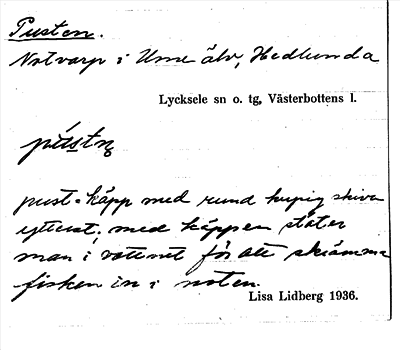 Pusten.
Notvarp i Ume älv, Hedlunda
Lycksele sn o. tg, Västerbottens l.
pust = käpp med rund kupig skiva
ytterst; med käppen stöter
man i vattnet för att skrämma
fisken in i noten.
Lisa Lidberg 1936.